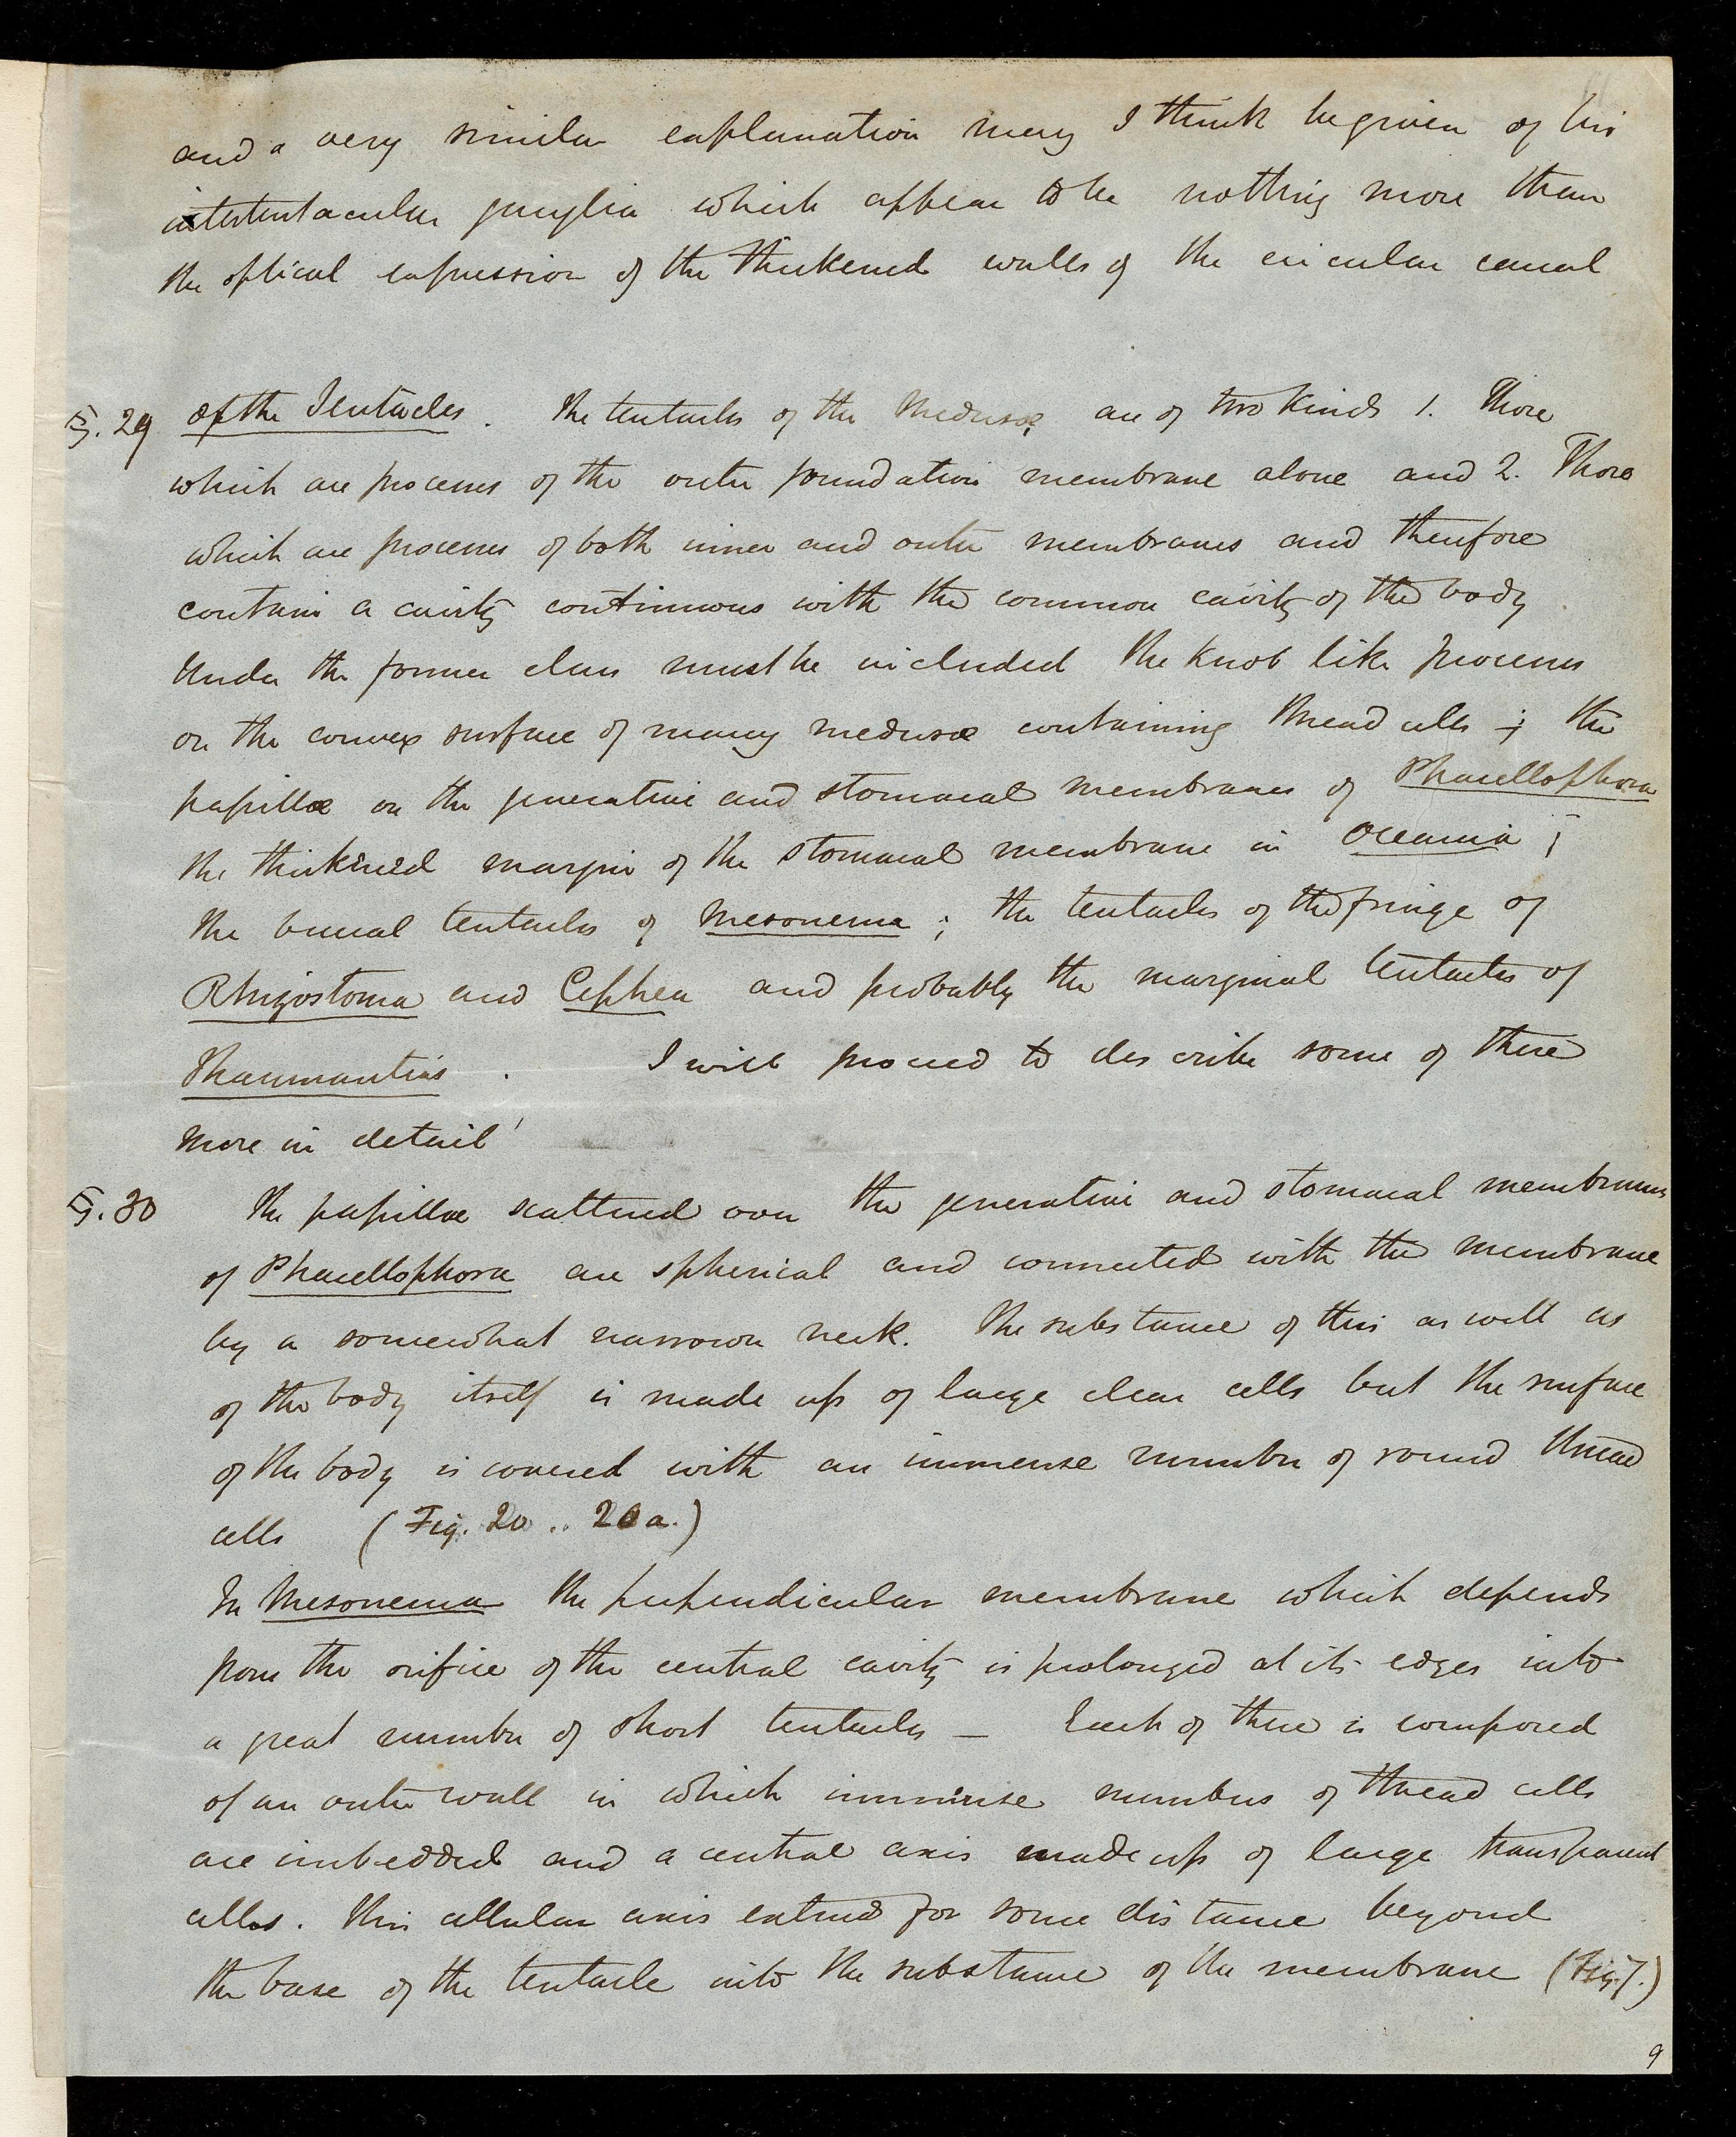 and a very similar explanation may I think be given of his
intertentacular ganglia which appear to be nothing more than
the optical expression of the thickened walls of the circular canal
§. 29 Of the Tentacles. The tentacles of the Medusæ are of two kinds 1. Those
which are processes of the outer foundation membrane alone and 2. Those
which are processes of both inner and outer membranes and therefore
contain a cavity continuous with the common cavity of the body
Under the former class must be included the knob like processes
on the convex surface of many medusæ containing thread cells; the
papillæ on the generative and stomacal membranes of Phacellophora
the thickened margin of the stomacal membrane in Oceania;
the buccal tentacles of Mesonema; the tentacles of the fringe of
Rhizostoma and Cephea and probably the marginal tentacles of
Thaumantias. I will proceed to describe some of these
more in detail
§. 30 The papillæ scattered over the generative and stomacal membranes
of Phacellophora are spherical and connected with the membrane
by a somewhat narrown neck. The substance of this as well as
of the body itself is made up of large clear cells but the surface
of the body is covered with an immense number of round thread
cells (Fig. 20 .. 20a.)
In Mesonema the perpendicular membrane which depends
from the orifice of the central cavity is prolonged at its edges into
a great number of short tentacles — Each of these is composed
of an outer wall in which immense numbers of thread cells
are imbedded and a central axis made up of large transparent
cells. This cellular axis extends for some distance beyond
the base of the tentacle into the substance of the membrane (Fig. 7.)
9